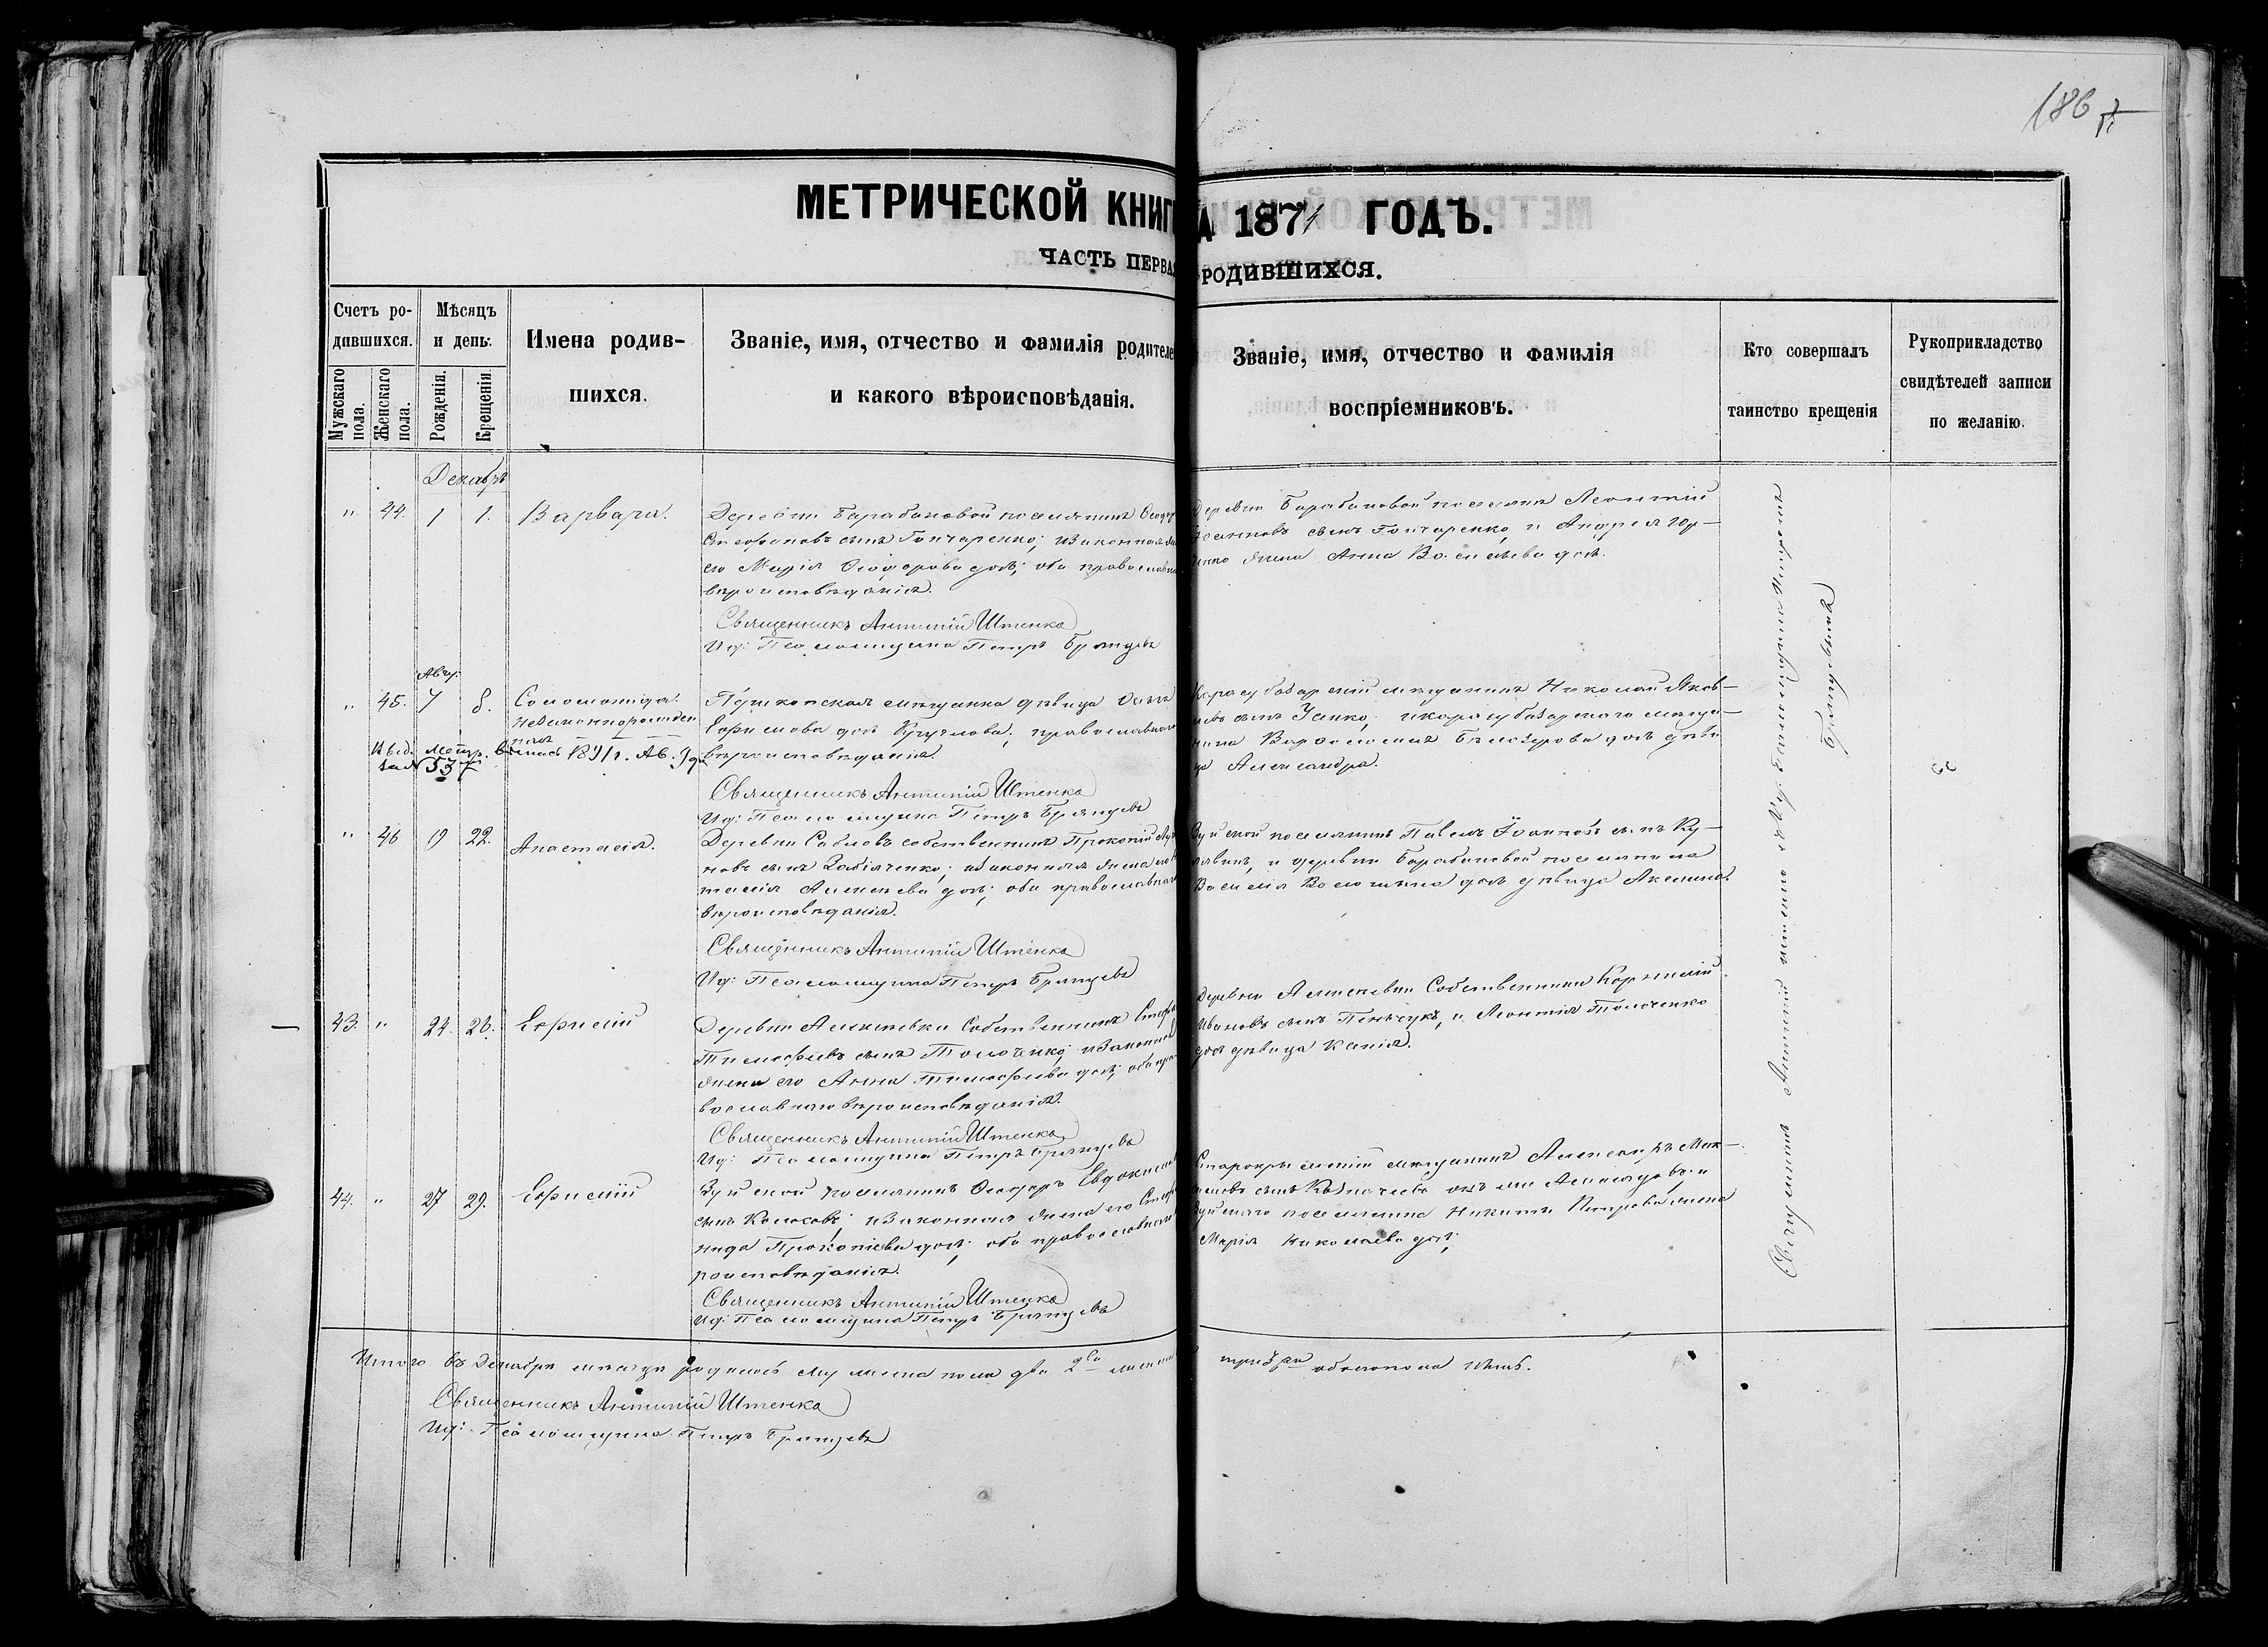 186
МЕТРИЧЕСКОЙ КНИГ
А 1871 ГОДЪ.
ЧАСТЬ ПЕРВА
РОДИВШИХСЯ.
Счетъ ро-
дившихся.
Мужскаго пола.
Женскаго пола.
Мѣсяцъ
и день.
Рожденія.
Крещенія.
Имена родив-
шихся.
Званіе, имя, отчество и фамилія родителе
и какого вѣроисповѣданія.
Званіе, имя, отчество и фамилія
воспріемниковъ.
Кто совершалъ
таинство крещенія
Рукоприкладство
свидѣтелей записи
по желанію.
Декабрь
" 44. 1 1. Варвара.
Деревни Барабановой поселянинъ Ѳеодор
Стефановъ сынъ Гончаренко; и законная
его Марія Ѳеодорова доч; оба православна
вѣроисповѣданія.
Священникъ Антипій Штенко
Ид: Псаломщика Петръ Брянцевъ
Деревни Барабановой поселянинъ Леонтій
сынъ Гончаренко, и Андрея
жена Анна Васильева доч.
" 45. 7 8. Соломонида.
незаконнорожден
ная
мѣщанка дѣвица
Ефимова доч православнаго
вѣроисповѣданія.
Священникъ Антипій Штенко
Ид: Псаломщика Петръ Брянцевъ
Карасубазарскій мѣщанинъ Николай Яков-
левъ сынъ Усенко; и карасубазарскаго мѣща-
нина доч дѣви
ца Александра.
Выд. метр.
за № 537
1891 г. Ав. 9
" 46 9 22. Анастасія.
Деревни Сабловъ собственникъ Прокопій
новъ сынъ и законная жена его
тасія Алексѣева доч; оба православнаго
вѣроисповѣданія.
Священникъ Антипій Штенко
Ид: Псаломщика Петръ Брянцевъ
Зуйской поселянинъ Павелъ Іоанновъ сынъ Ку-
и деревни Барабановой поселянина
Василія доч дѣвица Акелина.
43. " 24. 26. Ефимій
Деревни Алексѣевки Собственникъ Стефа
Тимофѣевъ сынъ Толоченко; и законная
жена его Анна Тимофѣева доч; оба пра-
вославнаго вѣроисповѣданія.
Священникъ Антипій Штенко
Ид: Псаломщика Петръ Брянцевъ
Деревни Алексѣевки Собственники
Ивановъ сынъ и Леонтія Толоченко
доч дѣвица Ксенія.
44. " 27 29. Ефимій
Зуйской поселянинъ Ѳеодоръ Евдокимо
сынъ Колосовъ; и законная жена его Стефа
нида Прокопіева доч; оба православнаго
роисповѣданія.
Священникъ Антипій Штенко
Ид: Псаломщика Петръ Брянцевъ
Старокрымскій мѣщанинъ Александръ Мак-
симовъ сынъ
Зуйскаго поселянина Никиты Петрова жена
Марія Николаева доч;
Священникъ Антипій Штенко и Ид: Псаломщика Петръ
Брянцевъ
Итого въ Декабрѣ мѣсяцѣ родилось мужеска пола два 2 женска
три 3 обоего пола пять.
Священникъ Антипій Штенко
Ид: Псаломщика Петръ Брянцевъ